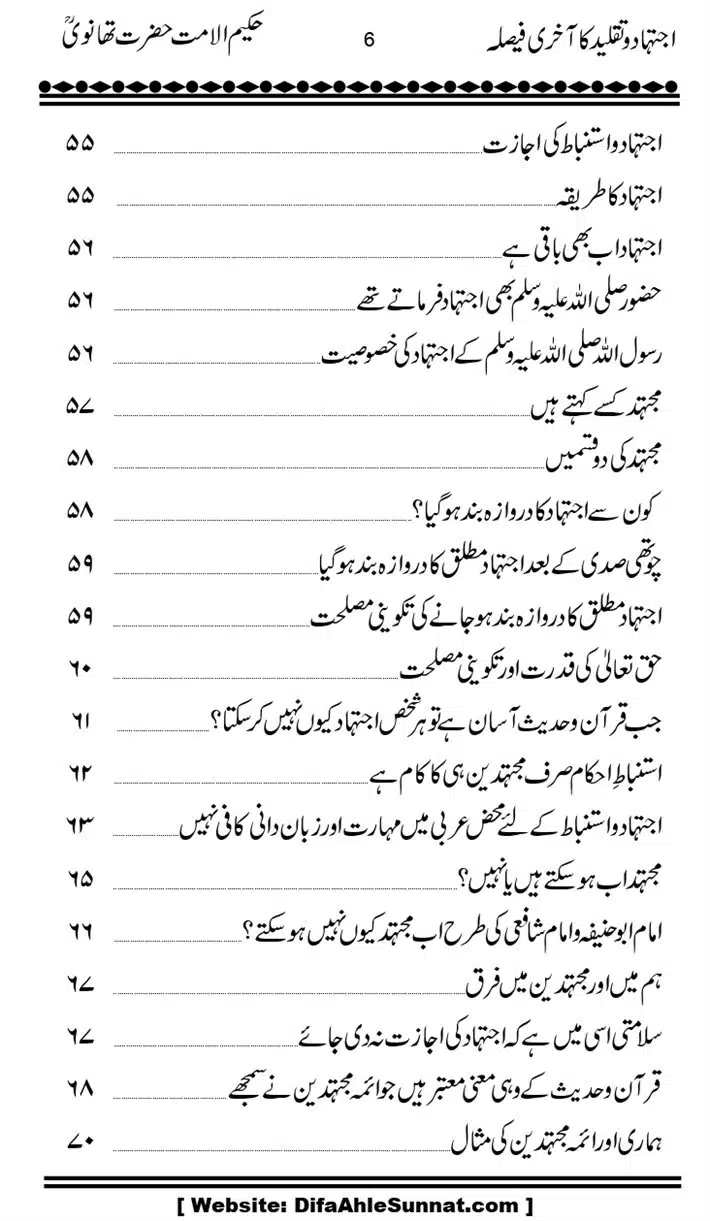 اجتہاد و تقلید کا آخری فیصلہ 6 حکیم الامت حضرت تھانویؒ
اجتہاد و استنباط کی اجازت ۵۵
اجتہاد کا طریقہ ۵۵
اجتہاد اب بھی باقی ہے ۵۶
حضور صلی اللہ علیہ وسلم بھی اجتہاد فرماتے تھے ۵۶
رسول اللہ صلی اللہ علیہ وسلم کے اجتہاد کی خصوصیت ۵۶
مجتہد کسے کہتے ہیں ۵۷
مجتہد کی دو قسمیں ۵۸
کون سے اجتہاد کا دروازہ بند ہو گیا؟ ۵۸
چوتھی صدی کے بعد اجتہاد مطلق کا دروازہ بند ہو گیا ۵۹
اجتہاد مطلق کا دروازہ بند ہو جانے کی تکوینی مصلحت ۵۹
حق تعالیٰ کی قدرت اور تکوینی مصلحت ۶۰
جب قرآن و حدیث آسان ہے تو ہر شخص اجتہاد کیوں نہیں کر سکتا؟ ۶۱
استنباطِ احکام صرف مجتہدین ہی کا کام ہے ۶۲
اجتہاد و استنباط کے لئے محض عربی میں مہارت اور زبان دانی کافی نہیں ۶۳
مجتہد اب ہو سکتے ہیں یا نہیں؟ ۶۵
امام ابو حنیفہ و امام شافعی کی طرح اب مجتہد کیوں نہیں ہو سکتے؟ ۶۶
ہم میں اور مجتہدین میں فرق ۶۷
سلامتی اسی میں ہے کہ اجتہاد کی اجازت نہ دی جائے ۶۷
قرآن و حدیث کے وہی معنی معتبر ہیں جو ائمہ مجتہدین نے سمجھے ۶۸
ہماری اور ائمہ مجتہدین کی مثال ۷۰
[ Website: DifaAhleSunnat.com ]